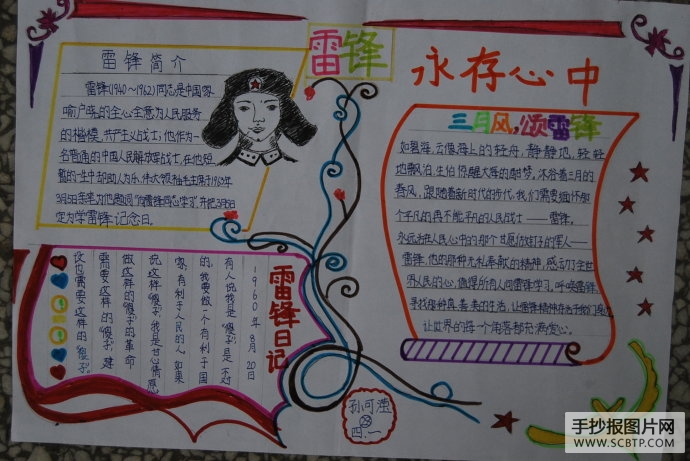 雷锋
永存心中
雷锋简介
雷锋(1940～1962)同志是中国家
喻户晓的全心全意为人民服务
的楷模,共产主义战士;他作为一
名普通的中国人民解放军战士,在他短
暂的一生中却助人为乐,伟大领袖毛主席于1963年
3月5日亲笔为他题词"向雷锋同志学习",并把3月5日
定为学雷锋记念日。
三月风,颂雷锋
如碧海,云像海上的轻舟,静静地,轻轻
地飘泊,生怕惊醒大海的甜梦。沐浴着三月的
春风,跟随着新时代的步伐,我们需要缅怀那
个平凡的再不能平凡的人民战士——雷锋。
永远活在人民心中的那个甘愿做钉子的军人——
雷锋,他的那种无私奉献的精神,感动了全世
界人民的心,值得所有人向雷锋学习,呼唤雷锋,
寻找那种真、善、美的生活,让雷锋精神存活于我们身边,
让世界的每一个角落都充满爱心。
雷锋日记
1960年8月20日
有人说我是"傻子",是不对
的。我要做一个有利于国
家,有利于人民的人。如果
说这样"傻子",我是甘心情愿
做这样的"傻子"的,革命
需要这样的"傻子",建
设也需要这样的"傻子"。
孙可滢
23
四.一
手抄报图片网
WWW.SCBTP.COM